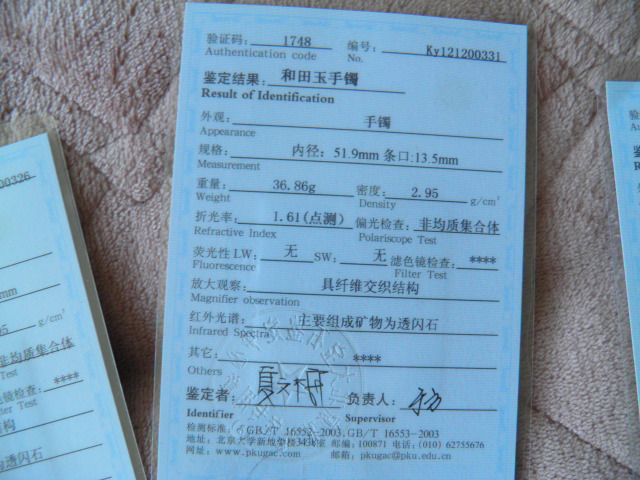 验证码: 1748 编号: Ky121200331
Authentication code No.
鉴定结果: 和田玉手镯
Result of Identification
外观: 手镯
Appearance
规格: 内径: 51.9mm 条口:13.5mm
Measurement
重量: 36.86g 密度: 2.95 g/cm³
Weight Density
折光率: 1.61(点测) 偏光检查: 非均质集合体
Refractive Index Polariscope Test
荧光性 LW: 无 SW: 无 滤色镜检查: ****
Fluorescence Filter Test
放大观察: 具纤维交织结构
Magnifier observation
红外光谱: 主要组成矿物为透闪石
Infrared Spectra
其它: ****
Others
鉴定者: 负责人:
Identifier Supervisor
检测标准: GB/T 16552-2003、GB/T 16553-2003
地址: 北京大学新地学楼343室 邮编: 100871 电话: (010) 62755676
网址: www.pkugac.com 邮箱: pkugac@pku.edu.cn
00326
mm
95 g/cm³
非均质集合体
Test
色镜检查: ****
Filter Test
构
为透闪石